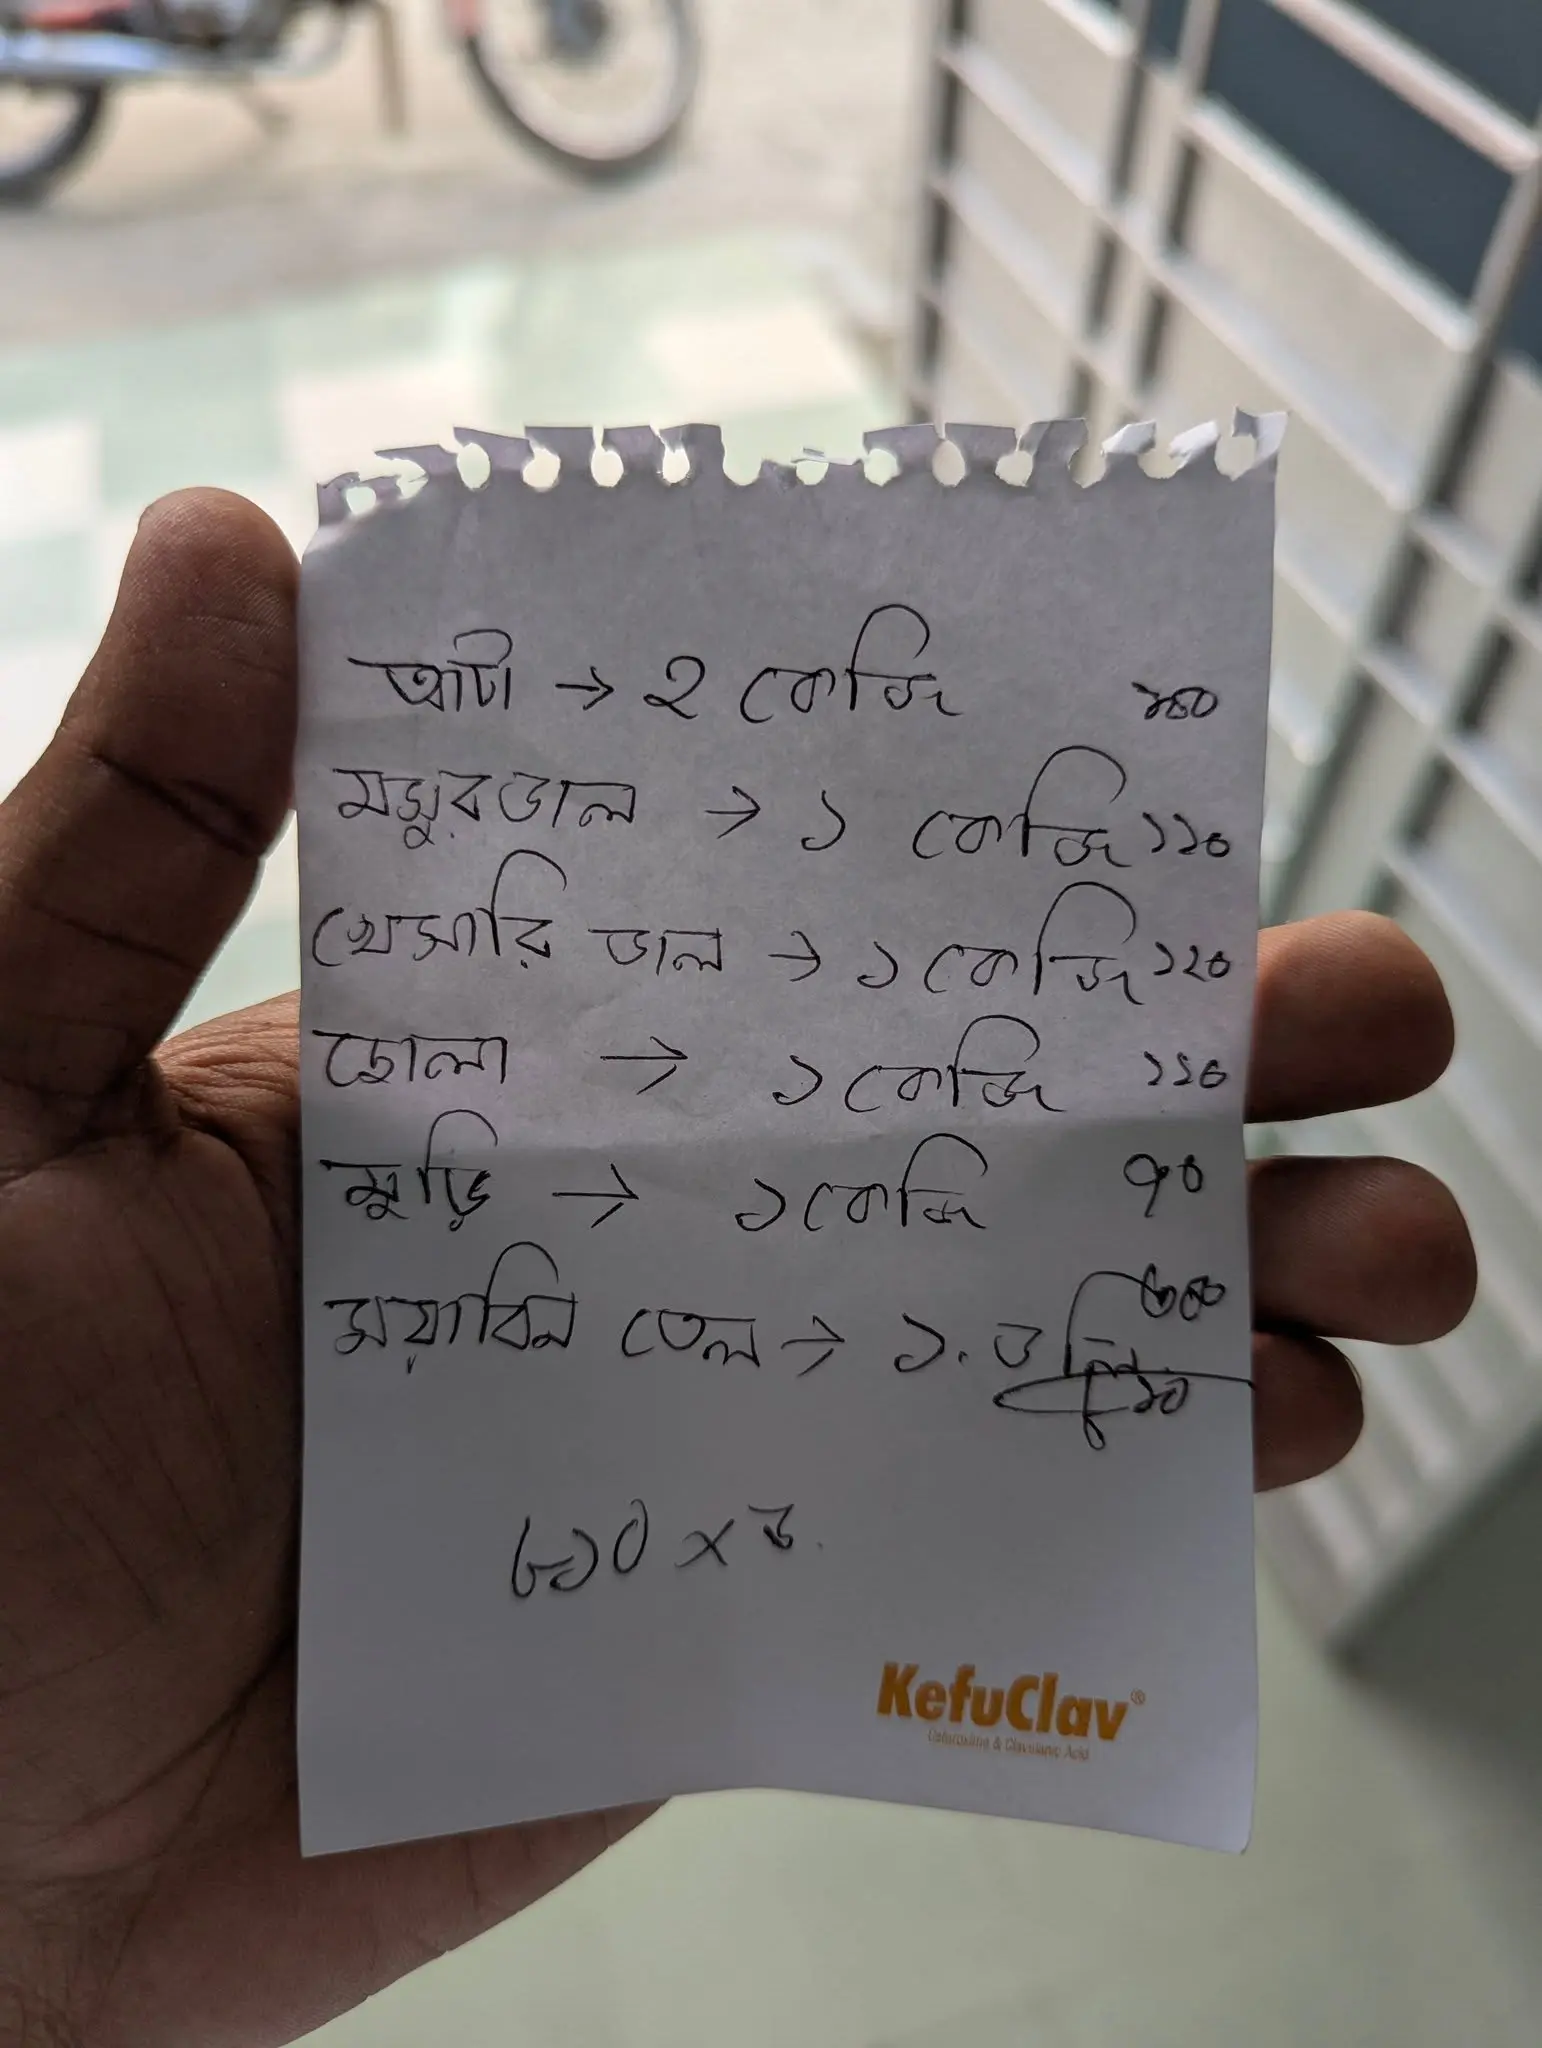 আটা → ২ কেজি ১০০
মসুরডাল → ১ কেজি ১১০
খেসারি ডাল → ১ কেজি ১২০
ছোলা → ১ কেজি ১১০
মুড়ি → ১ কেজি ৭০
সয়াবিন তেল → ১.৫ লি ৩০০
৮১০
৮১০ ×
KefuClav®
Cefuroxime & Clavulanic Acid